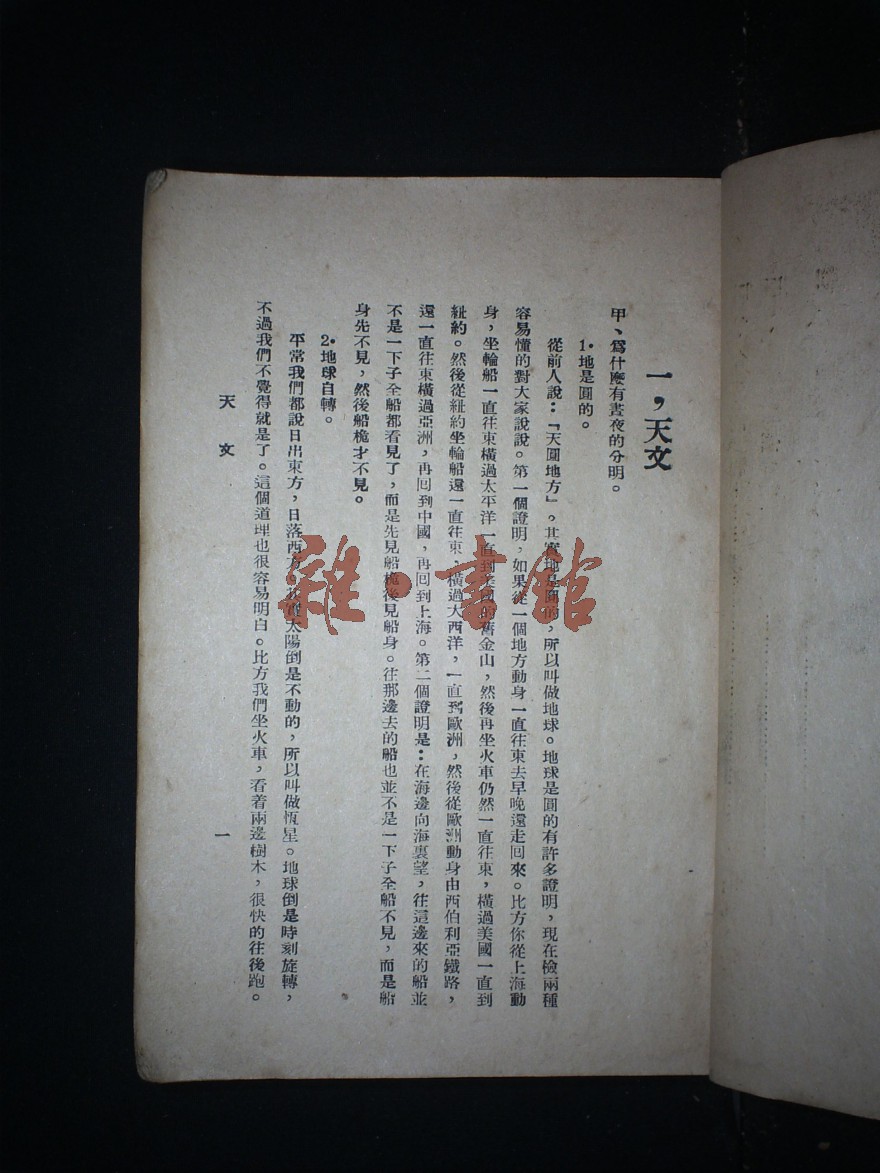 一，天文
甲、爲什麽有晝夜的分明。
1.地是圓的。
從前人說：「天圓地方」。其實地是圓的，所以叫做地球。地球是圓的有許多證明，現在檢兩種
容易懂的對大家說說。第一個證明，如果從一個地方動身一直往東去早晚還走回來。比方你從上海動
身，坐輪船一直往東橫過太平洋一直到美國的舊金山，然後再坐火車仍然一直往東，橫過美國一直到
紐約。然後從紐約坐輪船還一直往東，橫過大西洋，一直到歐洲，然後從歐洲動身由西伯利亞鐵路，
還一直往東橫過亞洲，再回到中國，再回到上海。第二個證明是：在海邊向海裏望，往這邊來的船並
不是一下子全船都看見了，而是先見船桅後見船身。往那邊去的船也並不是一下子全船不見，而是船
身先不見，然後船桅才不見。
2.地球自轉。
平常我們都說日出東方，日落西方。其實太陽倒是不動的，所以叫做恆星。地球倒是時刻旋轉，
不過我們不覺得就是了。這個道理也很容易明白。比方我們坐火車，看着兩邊樹木，很快的往後跑。
天文
一
雜·書館